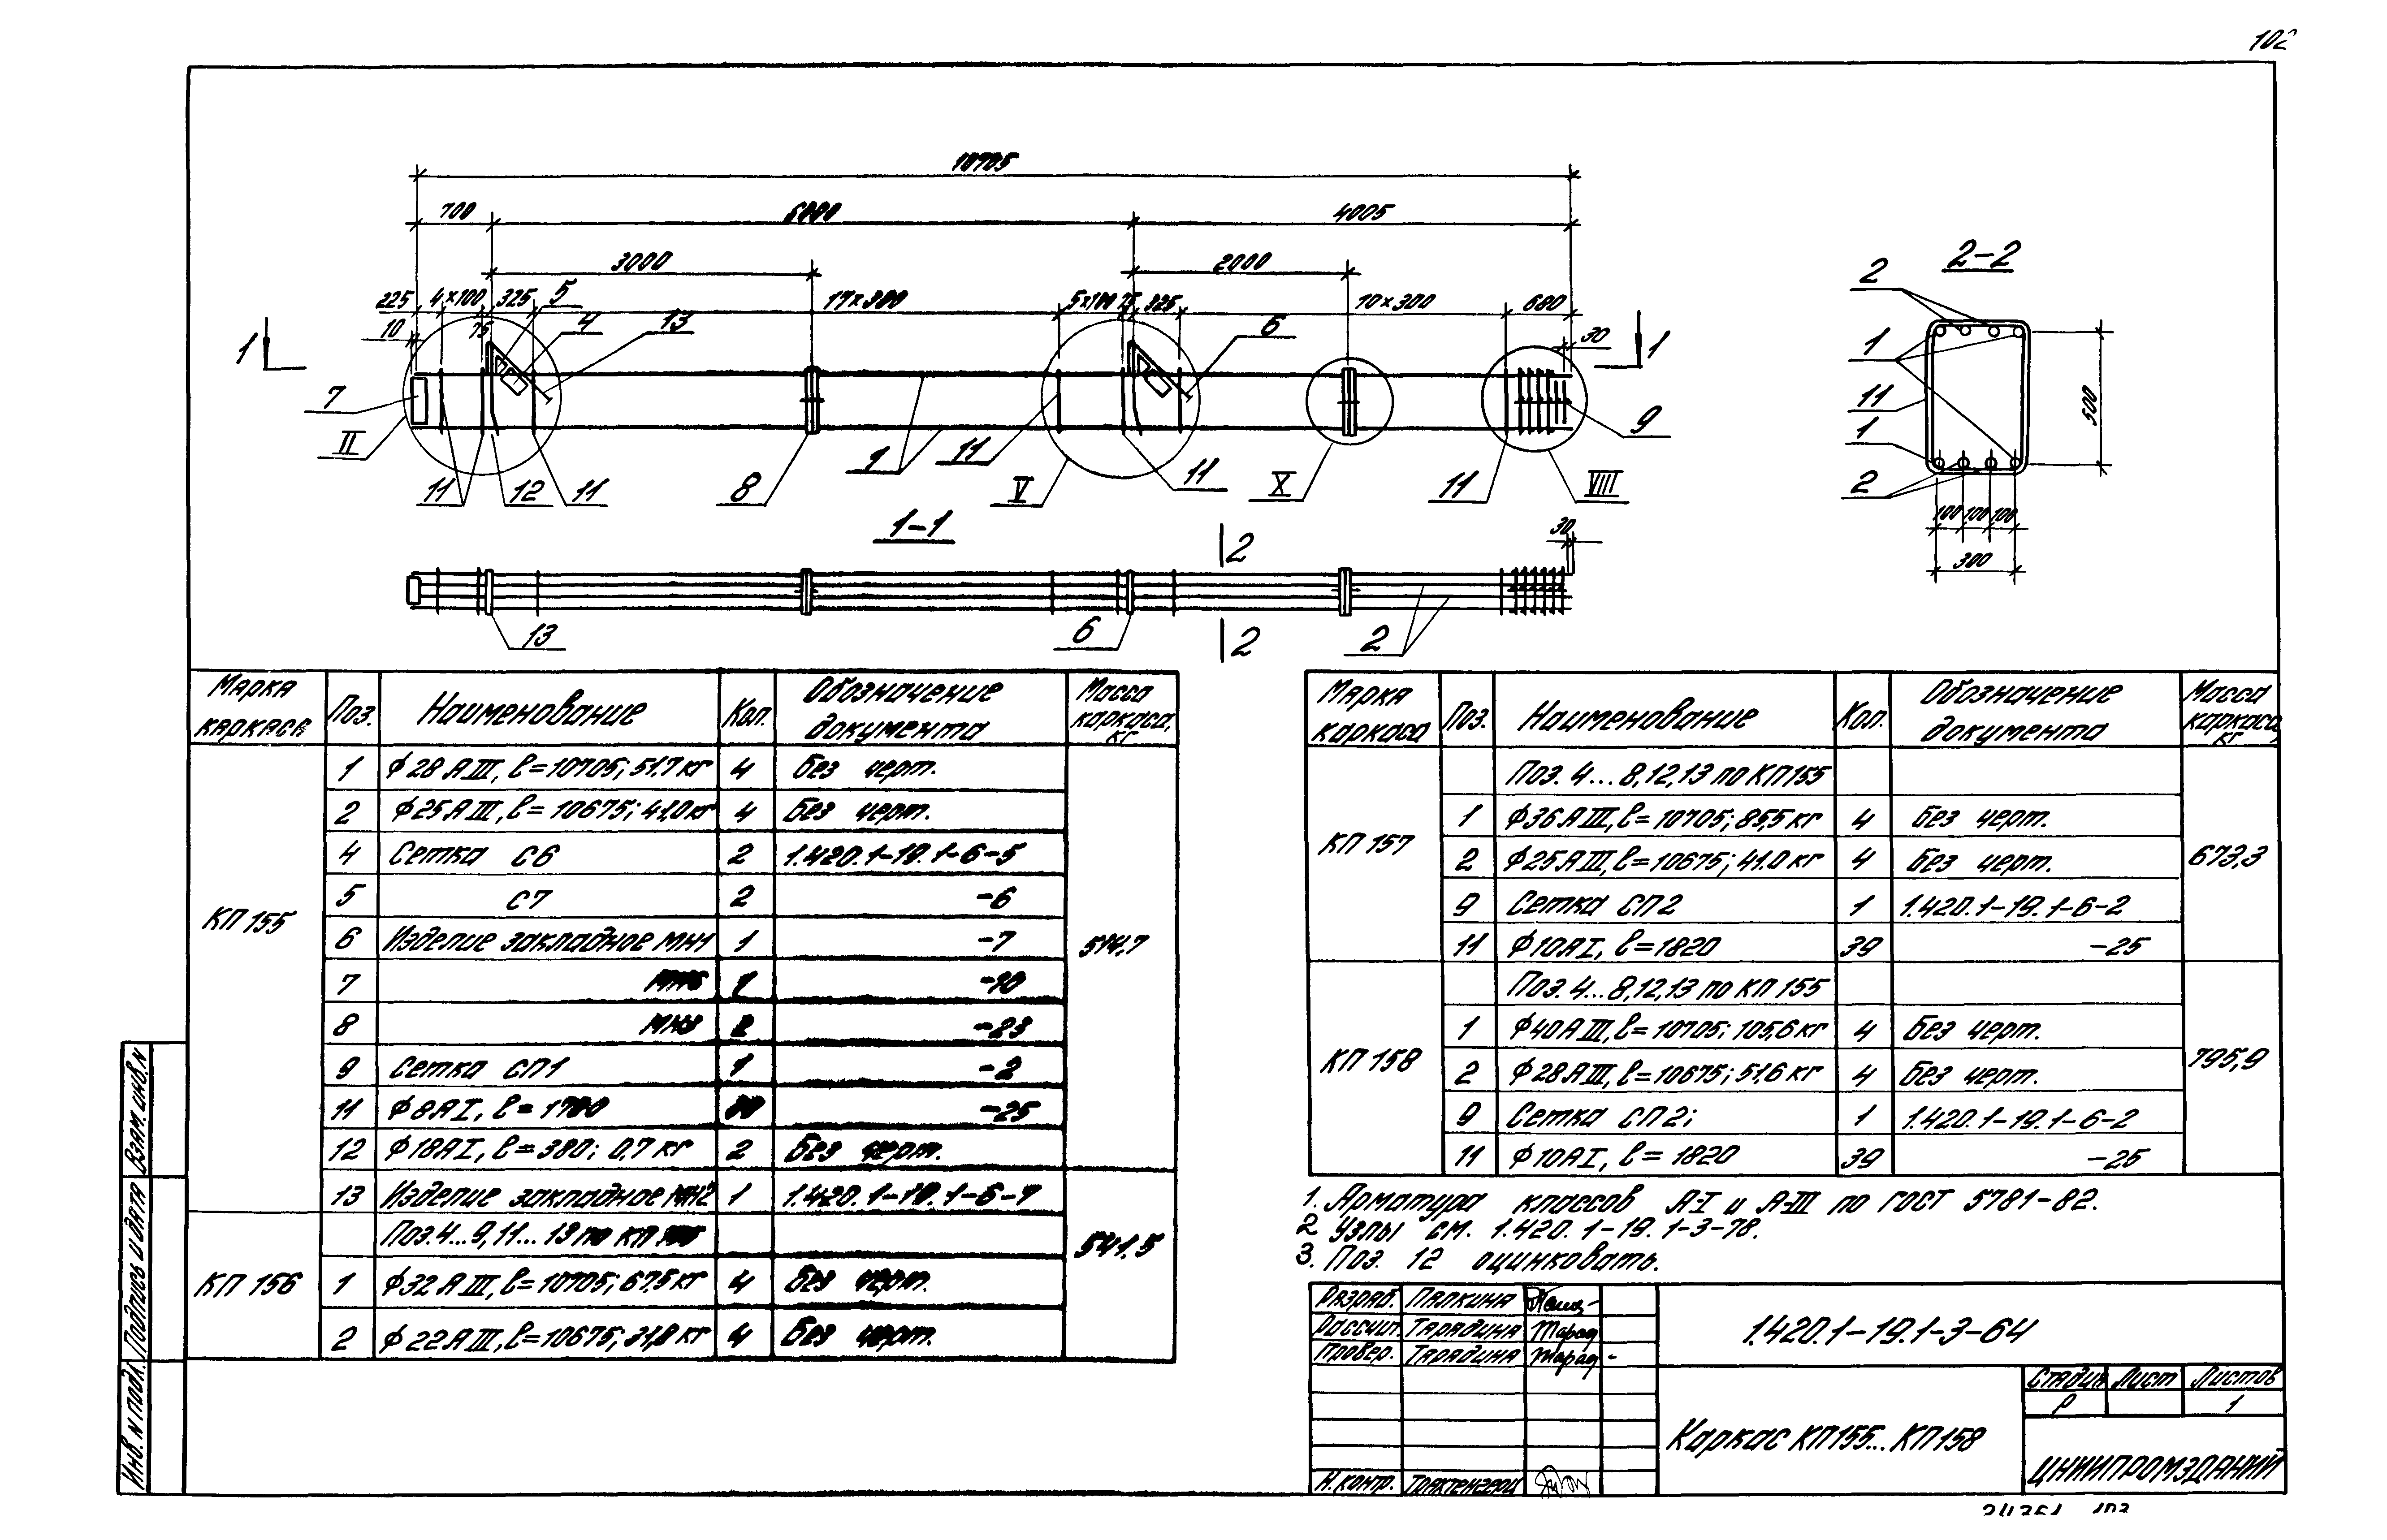 102
10705
700
6000
4005
3000
2000
225
4×100
325
5
17×300
5×100
25
325
10×300
680
10
75
4
13
6
30
1
1
7
II
9
11
12
11
8
1
11
V
11
X
11
VIII
1-1
2
30
13
6
2
2
2-2
2
1
11
1
2
500
100
100
100
300
Марка каркаса
Поз.
Наименование
Кол.
Обозначение документа
Масса каркаса, кг
КП 155
1 ϕ28 АIII, ℓ=10705; 51.7 кг 4 Без черт.
2 ϕ25 АIII, ℓ=10675; 41,0 кг 4 Без черт.
4 Сетка С6 2 1.420.1-19.1-6-5
5 С7 2 -6
6 Изделие закладное МН1 1 -7
514,7
7 1 -10
8 2 -23
9 Сетка СП1 1 -2
11 ϕ8АI, ℓ= -25
12 ϕ18АI, ℓ=380; 0,7 кг 2 Без черт.
13 Изделие закладное МН2 1 1.420.1-19.1-6-7
Поз.4...9, 11... 13 по КП
541,5
КП 156
1 ϕ32 АIII, ℓ=10705; 67,5 кг 4 Без черт.
2 ϕ22 АIII, ℓ=10675; 31,8 кг 4 Без черт.
Марка каркаса
Поз.
Наименование
Кол.
Обозначение документа
Масса каркаса, кг
Поз. 4... 8,12,13 по КП155
КП 157
1 ϕ36 АIII, ℓ=10705; 85,5 кг 4 Без черт.
2 ϕ25АIII, ℓ=10675; 41.0 кг 4 Без черт.
673,3
9 Сетка СП2 1 1.420.1-19.1-6-2
11 ϕ10АI, ℓ=1820 39 -25
Поз. 4... 8,12,13 по КП 155
КП 158
1 ϕ40АIII, ℓ=10705; 105,6 кг 4 Без черт.
2 ϕ28АIII, ℓ=10675; 51,6 кг 4 Без черт.
795,9
9 Сетка СП2; 1 1.420.1-19.1-6-2
11 ϕ10АI, ℓ= 1820 39 -25
1. Арматура классов А-I и А-III по ГОСТ 5781-82.
2 Узлы см. 1.420.1-19.1-3-78.
3. Поз. 12 оцинковать.
Разраб. Палкина
Рассчит. Тарадина
Провер. Тарадина
Н.контр.
1.420.1-19.1-3-64
Каркас КП155...КП158
Стадия Лист Листов
Р 1
ЦНИИПРОМЗДАНИЙ
Взам. инв. N
Подпись и дата
Инв. N подл.